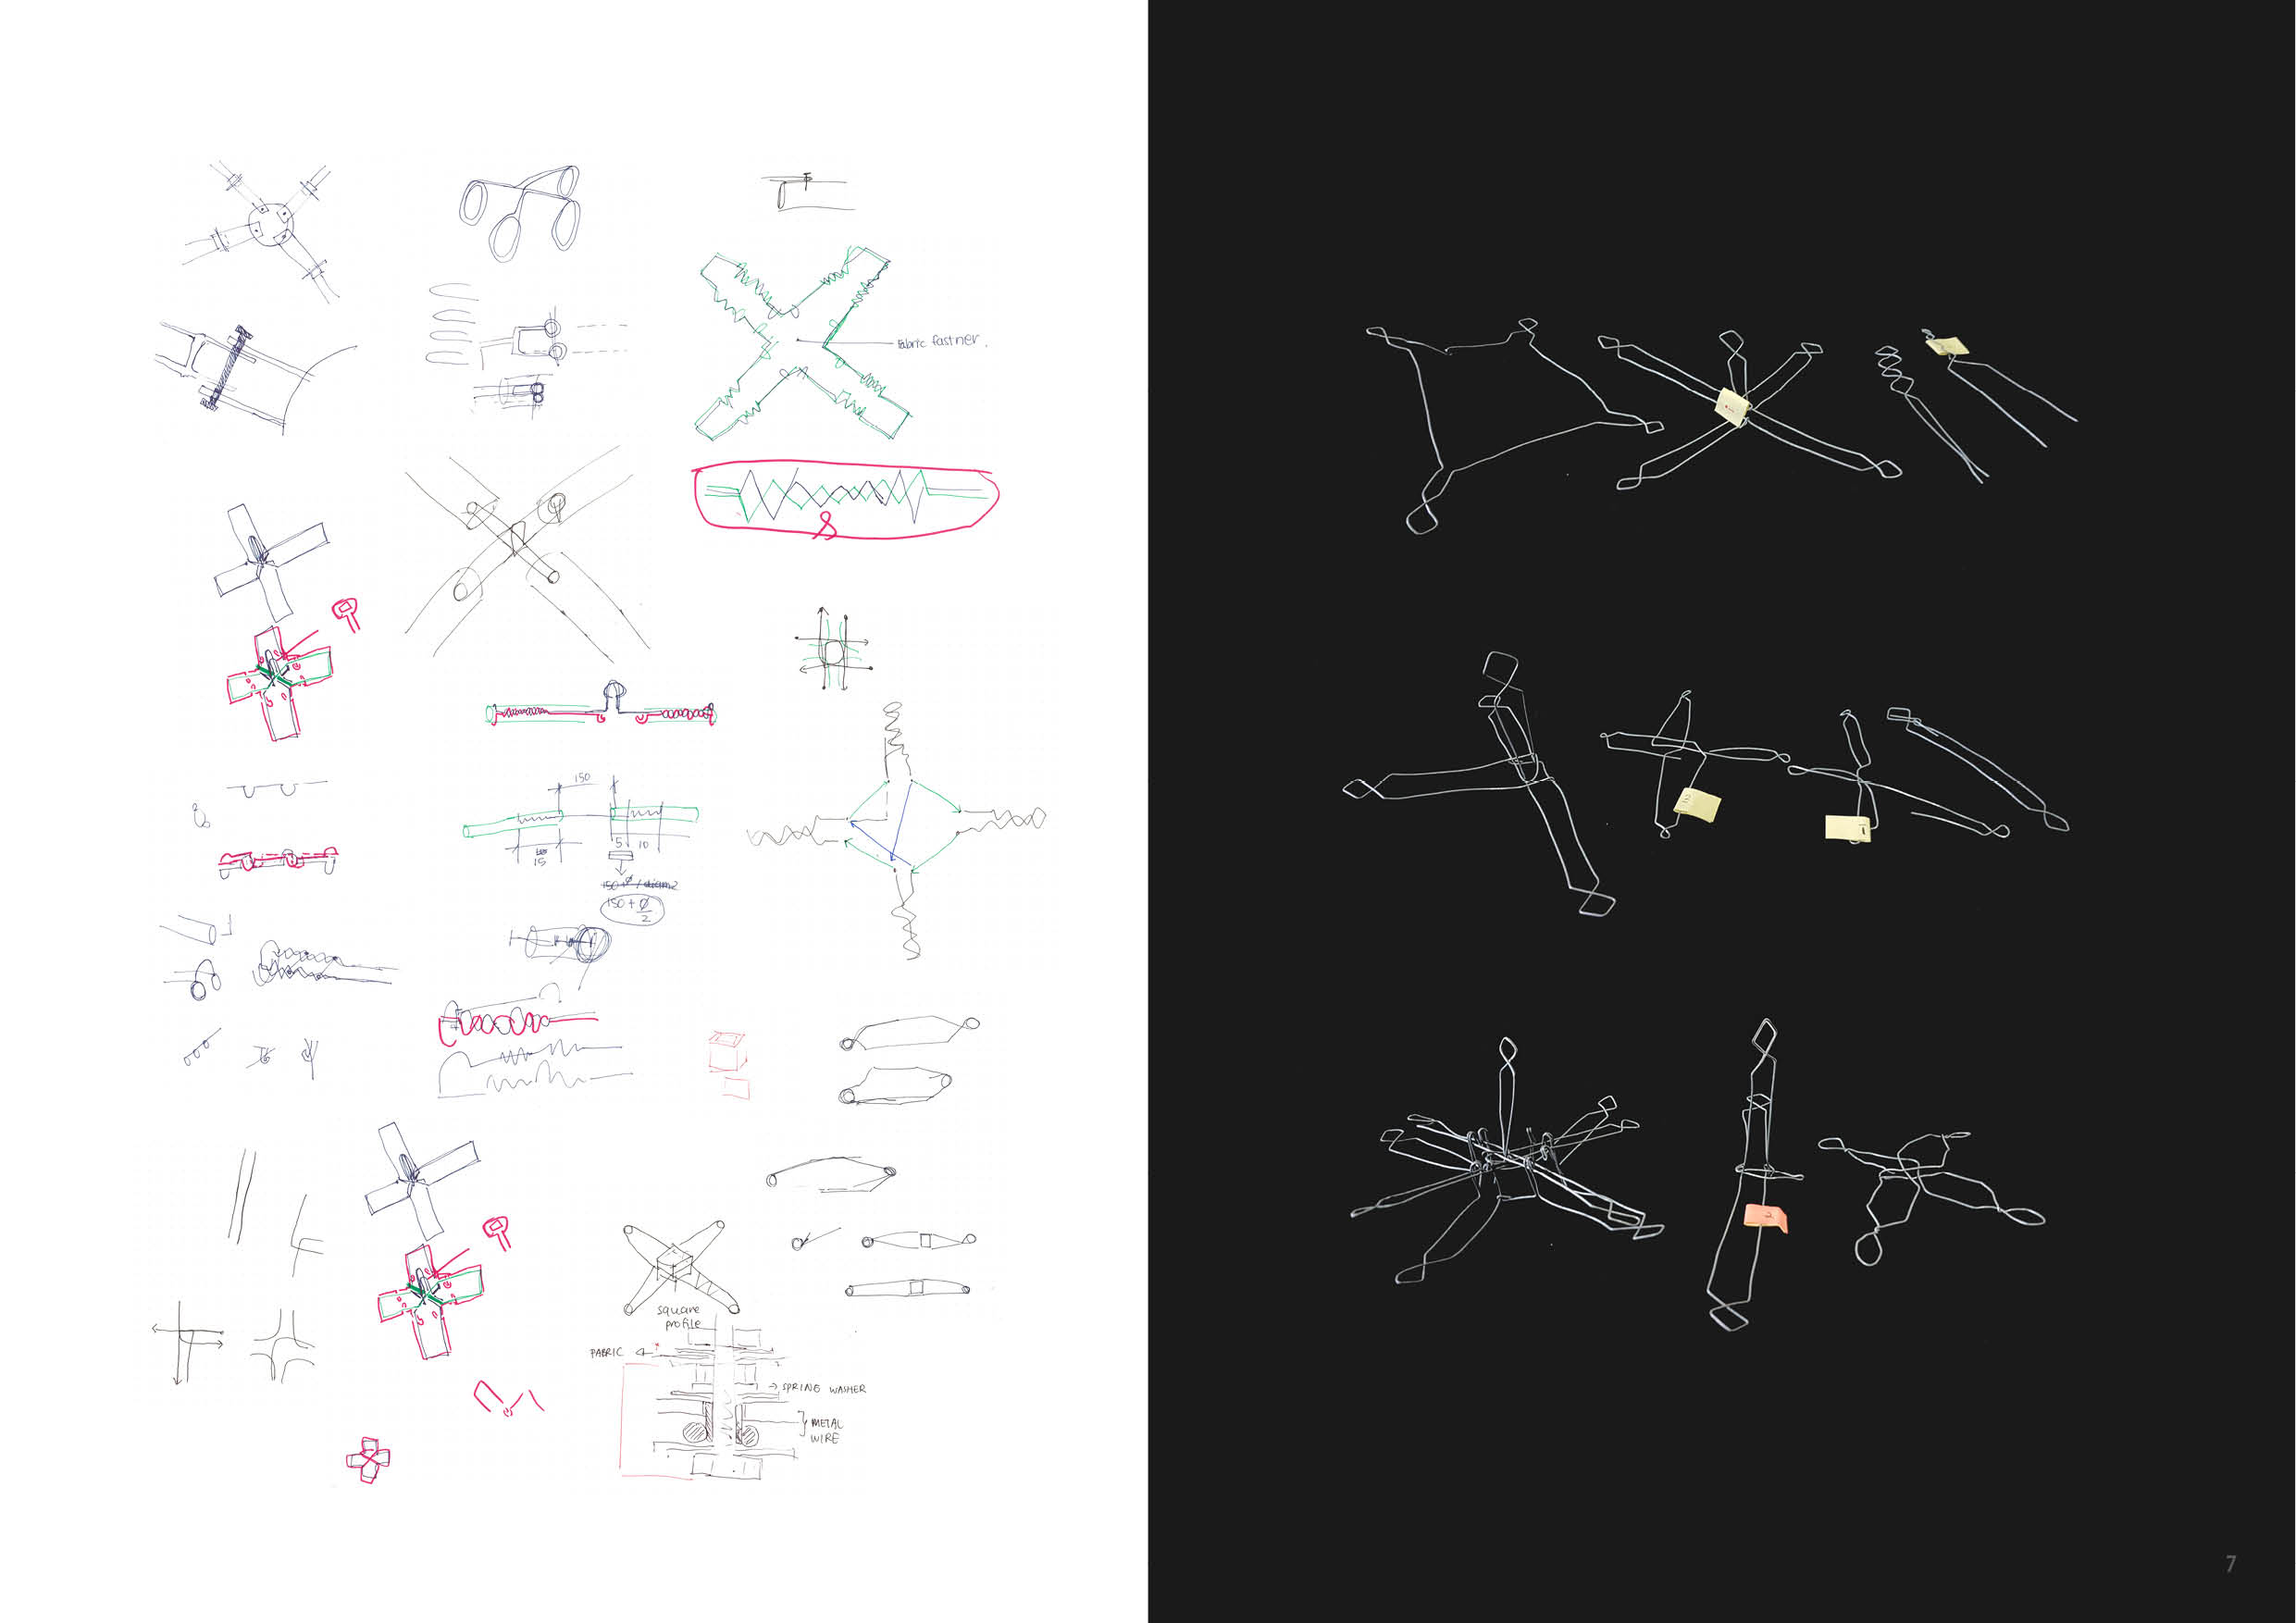 Fabric fastner.
S
150
15
5
10
150 + Ø
2
square
profile
FABRIC
SPRING WASHER
METAL
WIRE
3
1
2
7